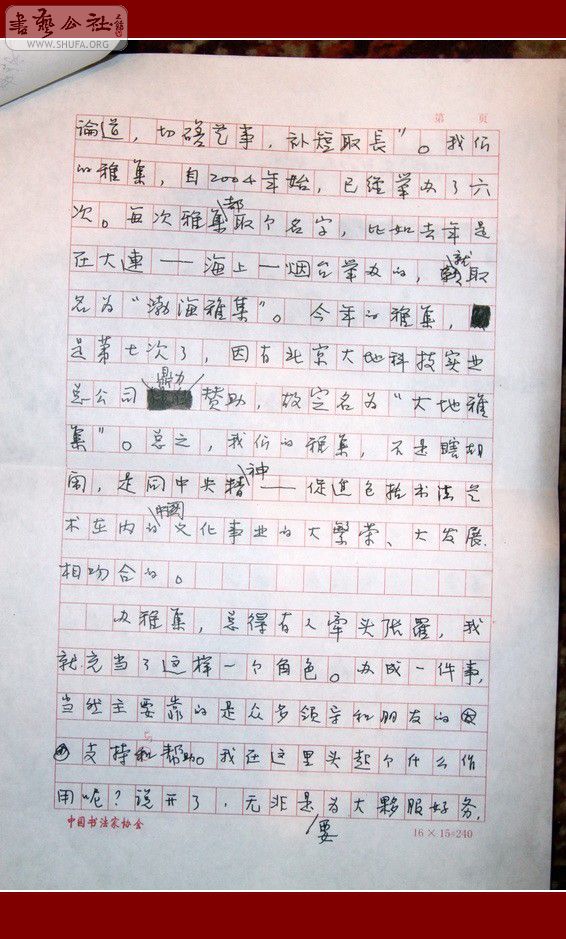 書藝公社
WWW.SHUFA.ORG
第 页
论道，切磋艺事，补短取長”。我们
的雅集，自2004年始，已经举办了六
次。每次雅集都取个名字，比如去年是
在大連——海上——烟台举办的，就取
名为“渤海雅集”。今年的雅集，
是第七次了，因有北京大地科技实业
总公司鼎力赞助，故定名为“大地雅
集”。总之，我们的雅集，不是瞎胡
闹，是同中央精神——促進包括书法艺
术在内的中國文化事业的大繁荣、大发展
相吻合的。
办雅集，总得有人牵头张罗，我
就充当了这样一个角色。办成一件事，
当然主要靠的是众多领导和朋友的
支持和帮助。我在这里头起个什么作
用呢？说开了，无非是要为大夥服好务，
中国书法家协会
16×15=240